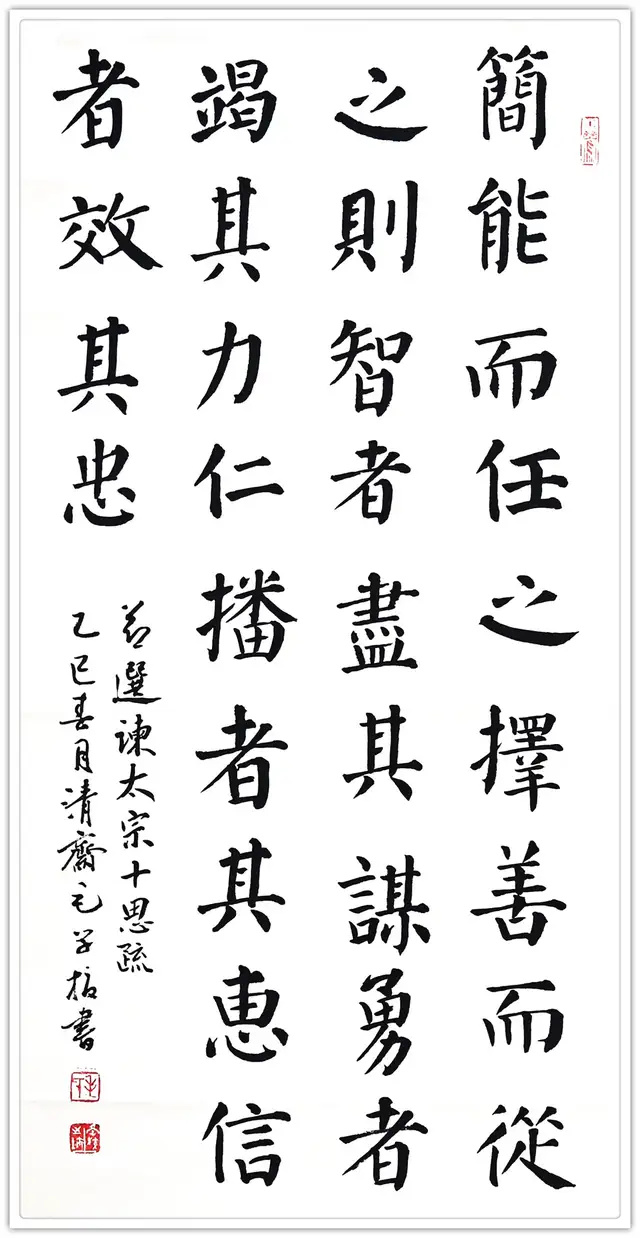 簡能而任之擇善而從
之則智者盡其謀勇者
竭其力仁播者其惠信
者效其忠
節選諫太宗十思疏
乙巳春月清齋毛學
書